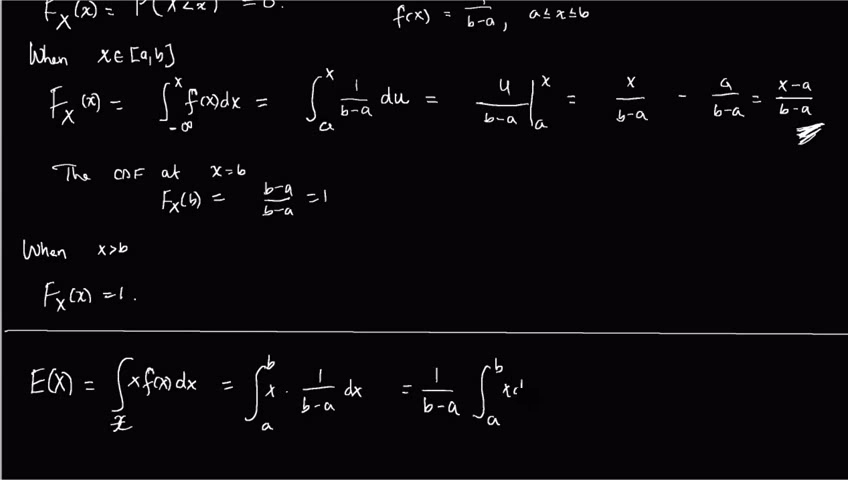 F_X(x) = P(X<x) = 0.
f(x) = 1/(b-a), a≤x≤b
When x∈[a,b]
F_X(x) = ∫_{-∞}^{x} f(x)dx = ∫_a^x 1/(b-a) du = u/(b-a) |_a^x = x/(b-a) - a/(b-a) = (x-a)/(b-a)
The CDF at x=b
F_X(b) = (b-a)/(b-a) = 1
When x>b
F_X(x) = 1.
E(X) = ∫_x x f(x) dx = ∫_a^b x · 1/(b-a) dx = 1/(b-a) ∫_a^b x